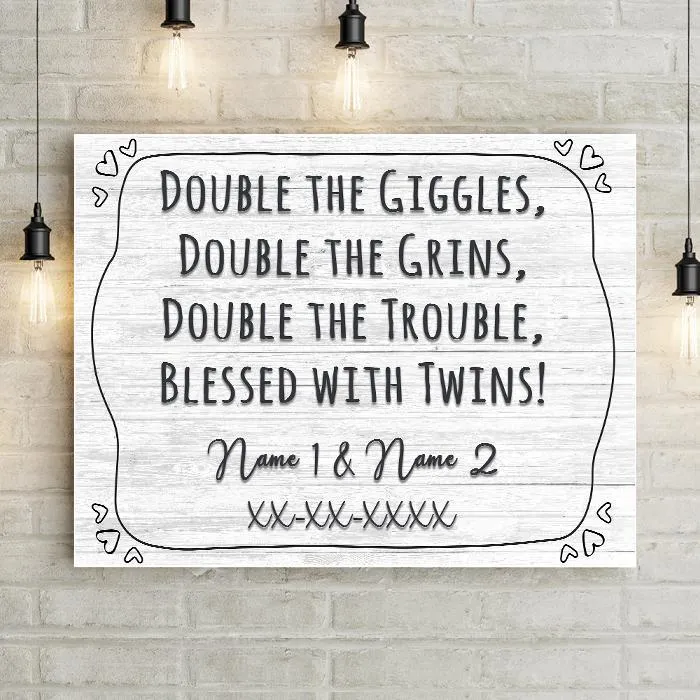 Double the Giggles,
Double the Grins,
Double the Trouble,
Blessed with Twins!
Name 1 & Name 2
XX-XX-XXXX